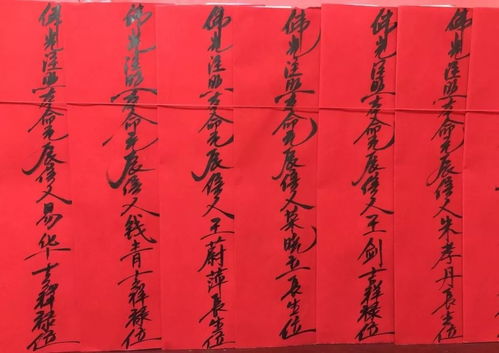 佛光注照本命元辰信人朱孝丹长生位
佛光注照本命元辰信人王剑吉祥禄位
佛光注照本命元辰信人晓长生位
佛光注照本命元辰信人王蔚萍长生位
佛光注照本命元辰信人钱青吉祥禄位
佛光注照本命元辰信人易华吉祥禄位